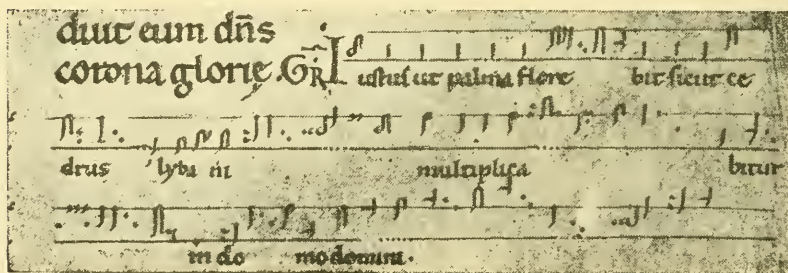 duit eum dñs
corona glorie. GR̄ Iustus ut palma flore bit sicut ce
drus lyba ni multiplica bitur
in do mo domini.